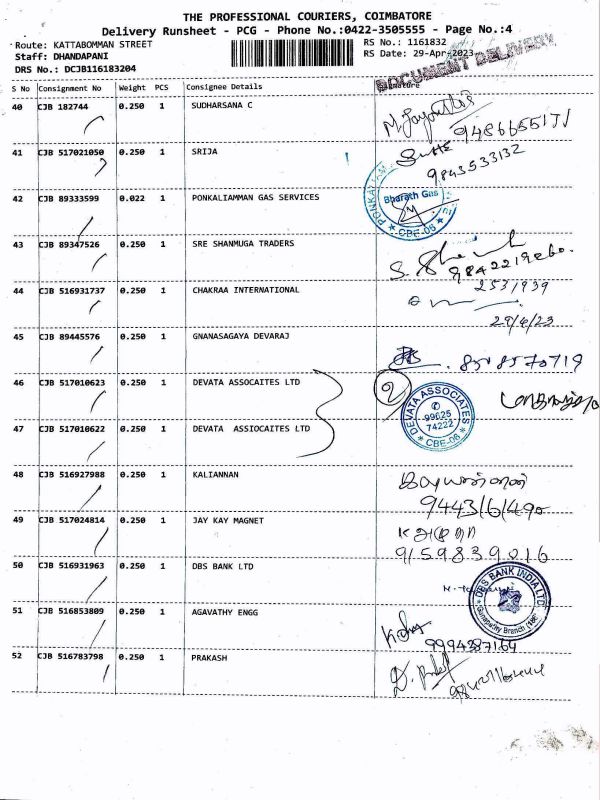 THE PROFESSIONAL COURIERS, COIMBATORE
Delivery Runsheet - PCG - Phone No.:0422-3505555 - Page No.:4
Route: KATTABOMMAN STREET
RS No.: 1161832
Staff: DHANDAPANI
RS Date: 29-Apr-2023
DRS No.: DCJB116183204
DOCUMENT DELIVERY
S No Consignment No Weight PCS Consignee Details Signature
40 CJB 182744 0.250 1 SUDHARSANA C
9486655171
41 CJB 517021050 0.250 1 SRIJA
9843533132
42 CJB 89333599 0.022 1 PONKALIAMMAN GAS SERVICES
Bharath Gas
CBE-06
43 CJB 89347526 0.250 1 SRE SHANMUGA TRADERS
44 CJB 516931737 0.250 1 CHAKRAA INTERNATIONAL
2531939
29/4/23
45 CJB 89445576 0.250 1 GNANASAGAYA DEVARAJ
46 CJB 517010623 0.250 1 DEVATA ASSOCAITES LTD
2
DEVATA ASSOCIATES
99625
74222
CBE-06
47 CJB 517010622 0.250 1 DEVATA ASSIOCAITES LTD
48 CJB 516927988 0.250 1 KALIANNAN
49 CJB 517024814 0.250 1 JAY KAY MAGNET
9159839016
50 CJB 516931963 0.250 1 DBS BANK LTD
DBS BANK INDIA LTD
51 CJB 516853809 0.250 1 AGAVATHY ENGG
9994287164
52 CJB 516783798 0.250 1 PRAKASH